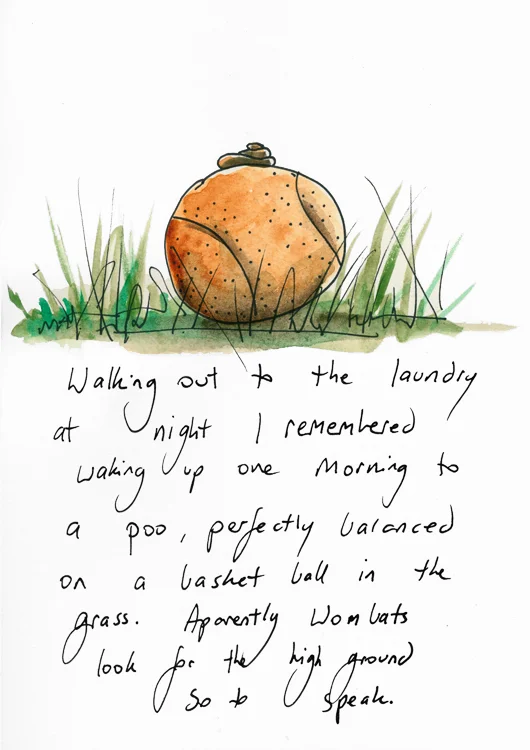 Walking out to the laundry
at night I remembered
waking up one morning to
a poo, perfectly balanced
on a basket ball in the
grass. Aparently Wombats
look for the high ground
so to speak.